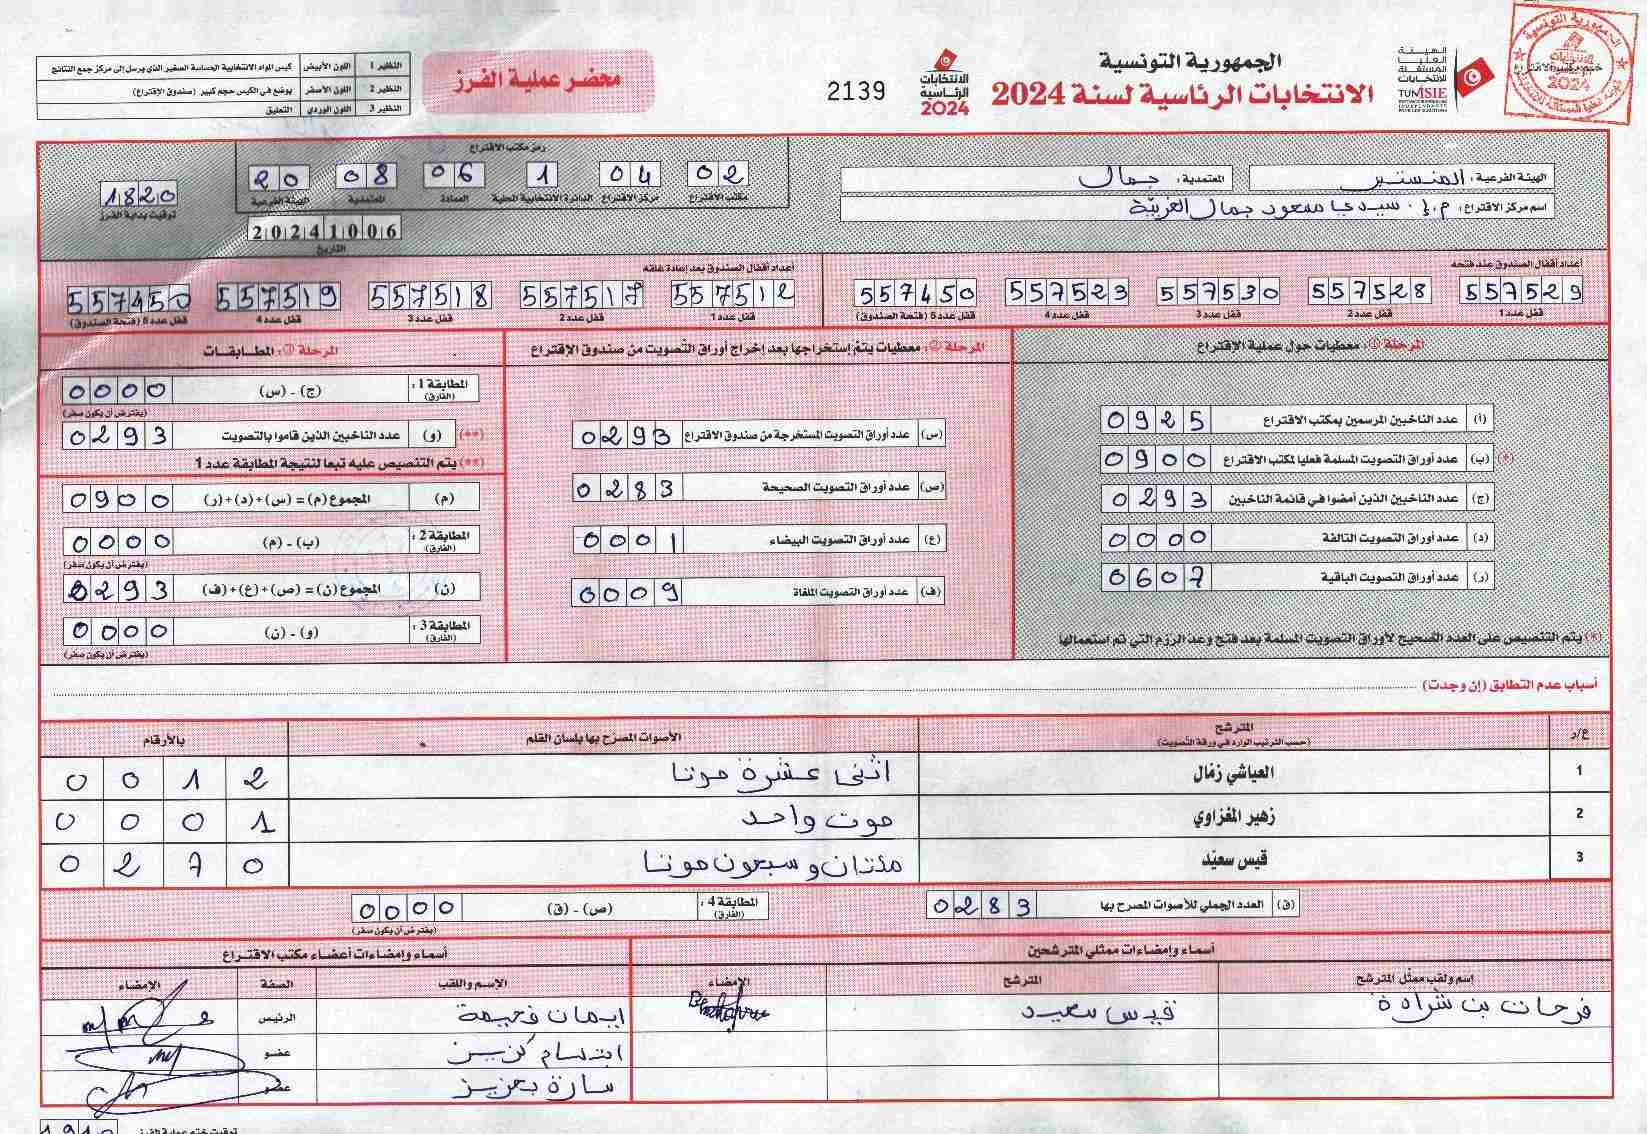 الجمهورية التونسية
الانتخابات الرئاسية لسنة 2024
الهيئة
العليا
المستقلة
للانتخابات
TUNISIE
الانتخابات
الرئاسية
2024
2139
محضر عملية الفرز
النظير 1 اللون الأبيض كيس المواد الانتخابية الحساسة الصغير الذي يرسل إلى مركز جمع النتائج
النظير 2 اللون الأصفر يوضع في الكيس حجم كبير (صندوق الإقتراع)
النظير 3 اللون الوردي التعليق
الهيئة الفرعية : المنستير
المعتمدية : جمال
اسم مركز الاقتراع : م.إ. سيدي مسعود جمال الغربية
رمز مكتب الاقتراع
02 04 1 06 08 20
مكتب الاقتراع مركز الاقتراع الدائرة الانتخابية المحلية العمادة المعتمدية الهيئة الفرعية
20241006
التاريخ
1820
توقيت بداية الفرز
أعداد أقفال الصندوق عند فتحه
557529 557528 557530 557523 557450
قفل عدد1 قفل عدد2 قفل عدد3 قفل عدد4 قفل عدد5 (فتحة الصندوق)
أعداد أقفال الصندوق بعد إعادة غلقه
557512 557517 557518 557519 557450
قفل عدد1 قفل عدد2 قفل عدد3 قفل عدد4 قفل عدد5 (فتحة الصندوق)
المرحلة ①: معطيات حول عملية الاقتراع
(أ) عدد الناخبين المرسمين بمكتب الاقتراع 0925
(*) (ب) عدد أوراق التصويت المسلمة فعليا لمكتب الاقتراع 0900
(ج) عدد الناخبين الذين أمضوا في قائمة الناخبين 0293
(د) عدد أوراق التصويت التالفة 0000
(ر) عدد أوراق التصويت الباقية 0607
(*) يتم التنصيص على العدد الصحيح لأوراق التصويت المسلمة بعد فتح وعد الرزم التي تم استعمالها
المرحلة ②: معطيات يتم إستخراجها بعد إخراج أوراق التصويت من صندوق الاقتراع
(س) عدد أوراق التصويت المستخرجة من صندوق الاقتراع 0293
(ص) عدد أوراق التصويت الصحيحة 0283
(ع) عدد أوراق التصويت البيضاء 0001
(ف) عدد أوراق التصويت الملغاة 0009
المرحلة ③: المطابقات
المطابقة 1 : (الفارق) (ج) - (س) 0000
(يفترض أن يكون صفر)
(**) (و) عدد الناخبين الذين قاموا بالتصويت 0293
(**) يتم التنصيص عليه تبعا لنتيجة المطابقة عدد 1
(م) المجموع (م) = (س) + (د) + (ر) 0900
المطابقة 2 : (الفارق) (ب) - (م) 0000
(يفترض أن يكون صفر)
(ن) المجموع (ن) = (ص) + (ع) + (ف) 0293
المطابقة 3 : (الفارق) (و) - (ن) 0000
(يفترض أن يكون صفر)
أسباب عدم التطابق (إن وجدت)
ع/ر المترشح الأصوات المصرح بها بلسان القلم بالأرقام
(حسب الترتيب الوارد في ورقة التصويت)
1 العياشي زمال اثنى عشرة صوتا 0012
2 زهير المغزاوي صوت واحد 0001
3 قيس سعيّد مئتان و سبعون صوتا 0270
(ق) العدد الجملي للأصوات المصرح بها 0283
المطابقة 4 : (الفارق) (ص) - (ق) 0000
(يفترض أن يكون صفر)
أسماء وإمضاءات ممثلي المترشحين
إسم ولقب ممثل المترشح المترشح الإمضاء
فرحات بن شرادة قيس سعيد
أسماء وإمضاءات أعضاء مكتب الاقتراع
الإسم واللقب الصفة الإمضاء
ايمان الرئيس
ابتسام عضو
سارة عضو